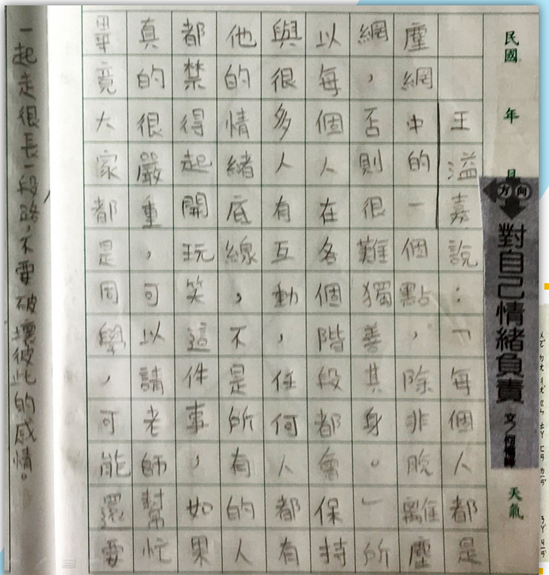 民國 年 月 天氣
方向
對自己情緒負責
王溢嘉說:「每個人都是
塵網中的一個點,除非脫離塵
網,否則很難獨善其身。」所
以每個人在各個階段都會保持
與很多人有互動,任何人都有
他的情緒底線,不是所有的人
都禁得起開玩笑,這件事,如果
真的很嚴重,可以請老師,幫忙
畢竟大家都是同學,可能還要
一起走很長一段路,不要破壞彼此的感情。